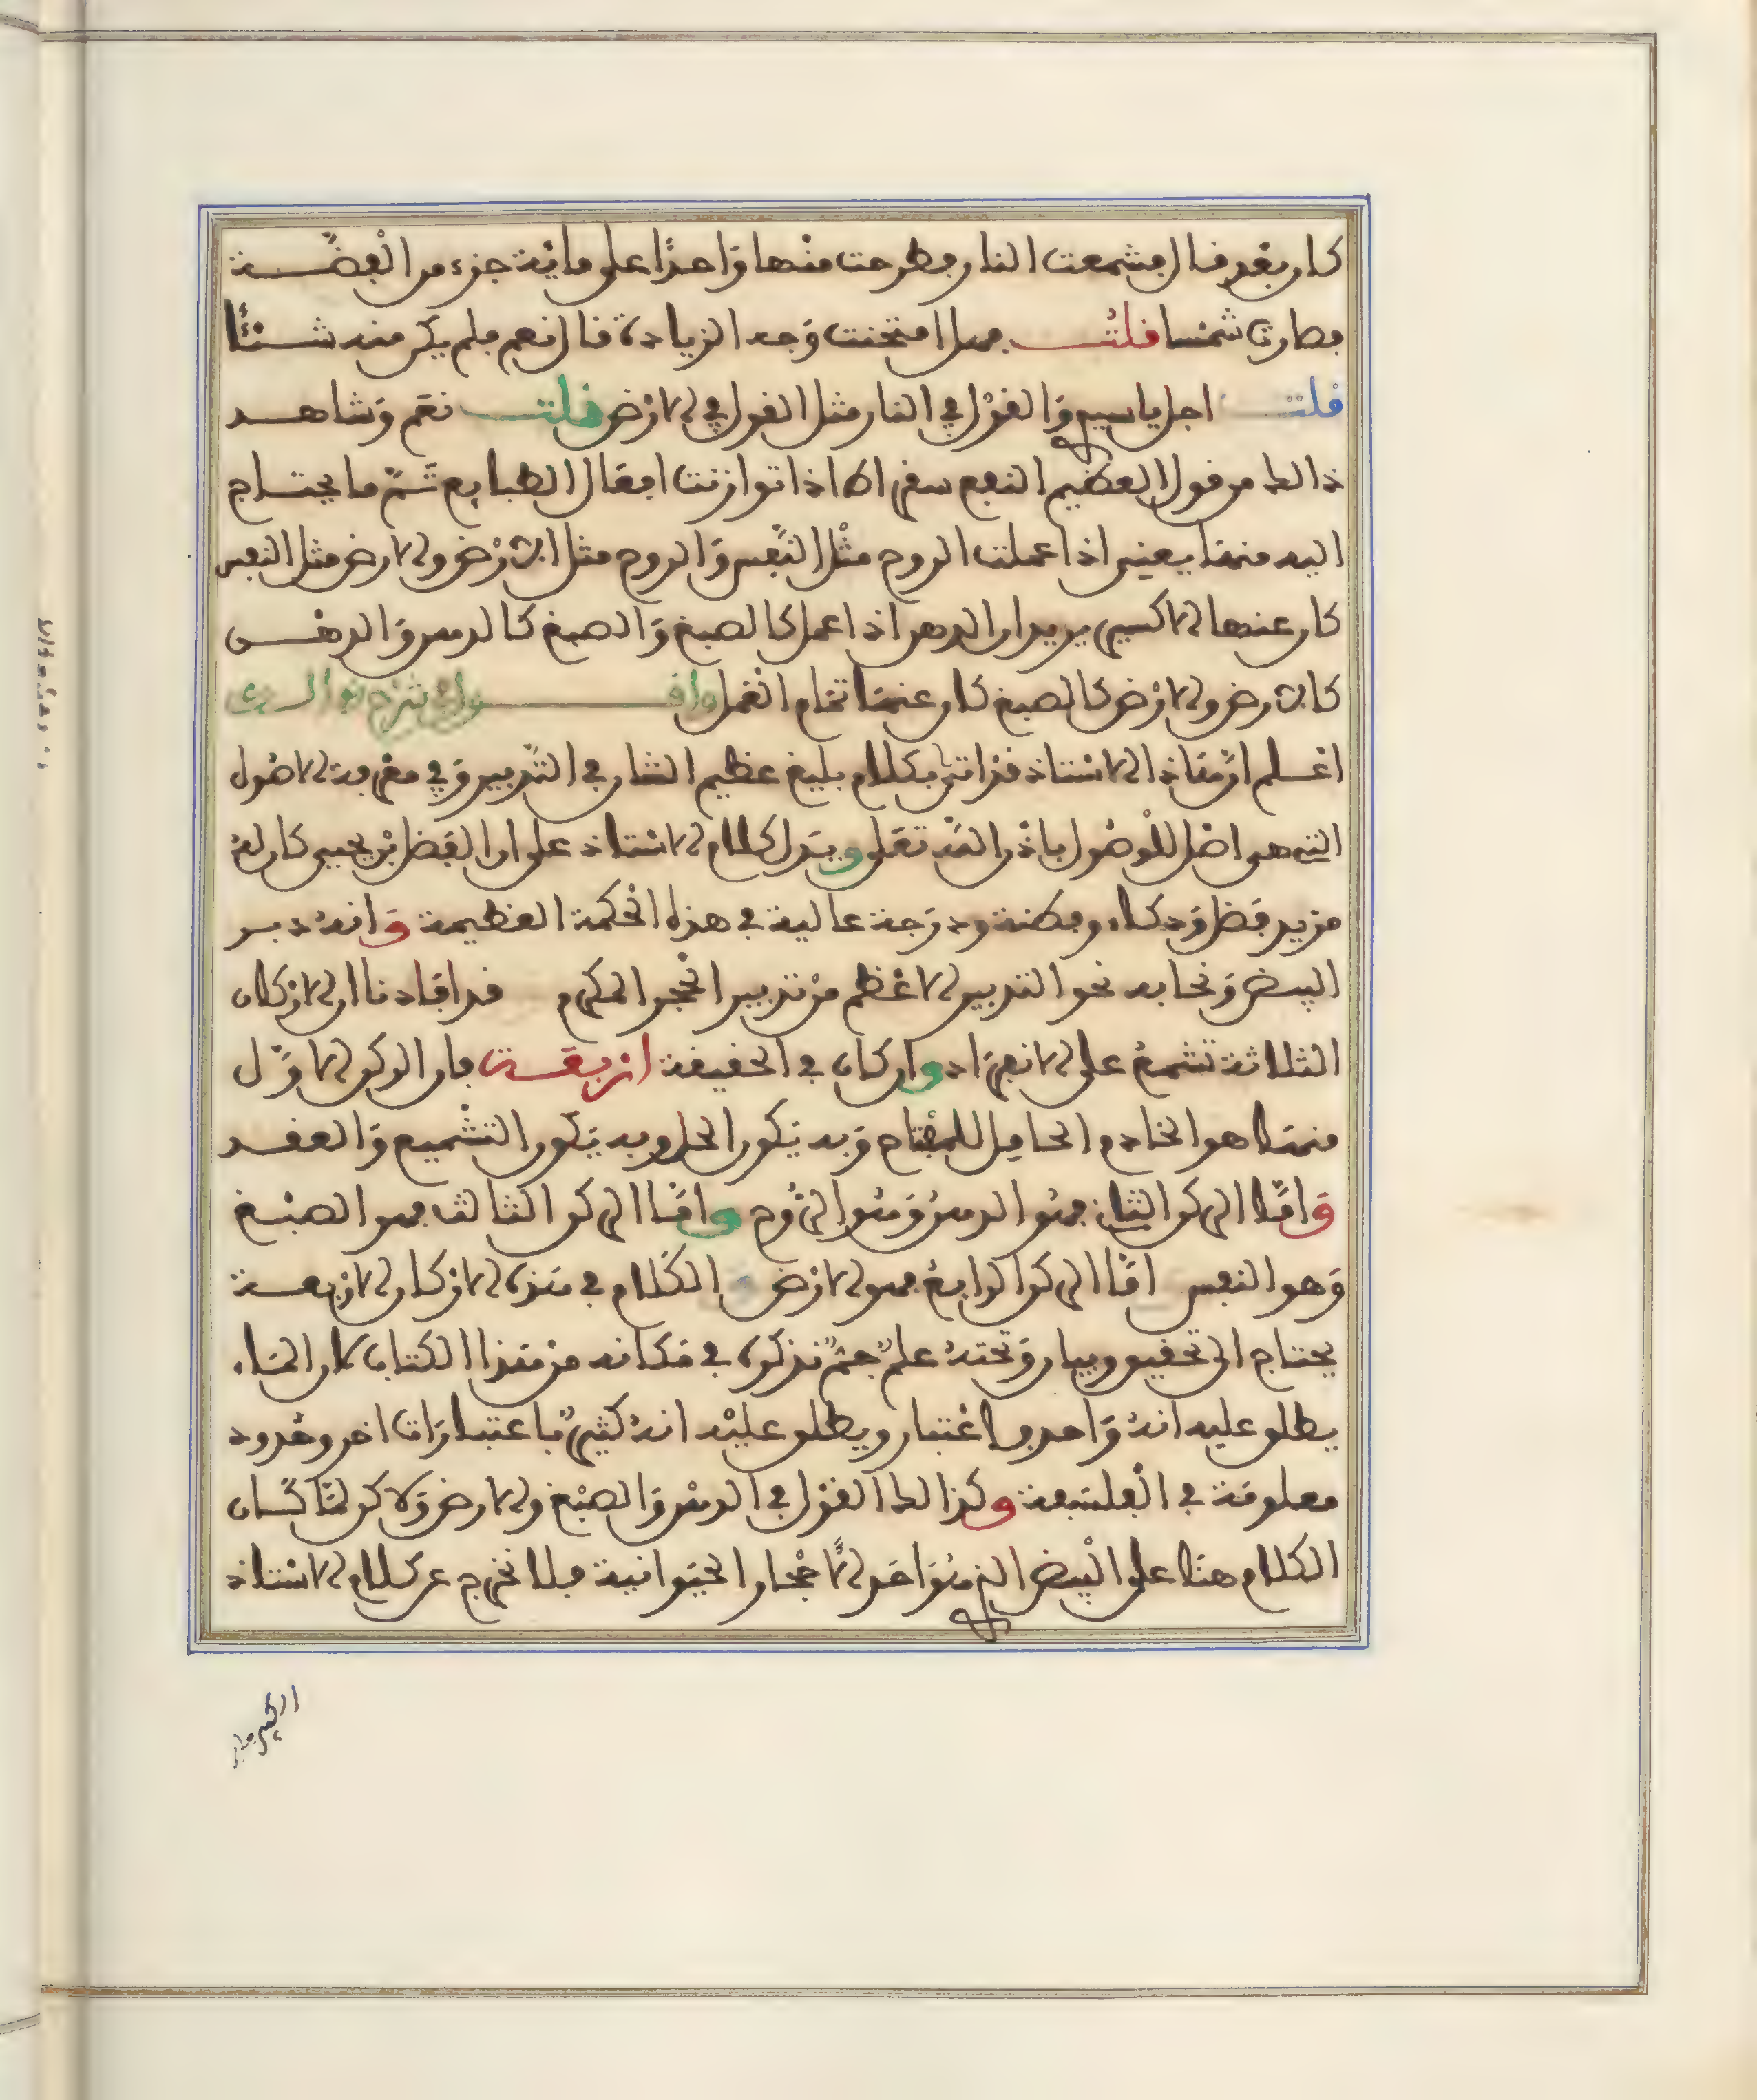 كان بعد قال فشمعت النار فطرحت منها واحدًا على ماية جزء من الفضـة
فصارت شمسا قلت فهل امتحنت وجه الزيادة قال نعم فلم يكن منه شيئًا
قلت اجل ياسيدي والقول في النار مثل القول في الارض قلت نعم وشاهد
ذالك من قول العظيم النعم سقراط اذا توازنت افعال الطبايع تم ما يحتاج
اليه منها يعني اذا عملت الروح مثل النفس والروح مثل الارض والارض مثل النفس
كان عنها الاكسير يريد ان الدهن اذا عمل كالصبغ والصبغ كالدهن والدهن
كالارض والارض كالصبغ كان عنها تمام العمل
اعلم ان هاذا الاستاذ قد اتى بكلام بليغ عظيم الشان في التدبير وفي معرفة الاصول
التي هي اصل للوصول باذن الله تعلى ويدل كلام الاستاذ على ان الفضل بن يحيى كان له
مزيد فضل وذكاء وفطنة ودرجة عالية في هذه الحكمة العظيمة وانه دبر
البيض ونحا به نحو التدبير الاعظم من تدبير الحجر المكرم قد افادنا ان الاركان
الثلاثة تشمع على الانفراد واركان في الحقيقة اربعة فان الركن الاول
منها هو الخادم الحامل للمفتاح وبه يكون الحل وبه يكون التشميع والعقد
واما الركن الثاني فهو الدهن وهو الروح واما الركن الثالث فهو الصبغ
وهو النفس اما الركن الرابع فهو الارض الكلام في هذه الاركان الاربعة
يحتاج الى تحقيق وبيان وتحته علم جم نذكره في مكانه من هذا الكتاب لان الماء
يطلق عليه انه واحد باعتبار ويطلق عليه انه كثير باعتبارات اخر وحدود
معلومة في الفلسفة وكذالك القول في الدهن والصبغ والارض ولاكن لما كان
الكلام هنا على البيض الذي هو احد الاحجار الحيوانية فلا نخرج عن كلام الاستاذ
الكبير جابر